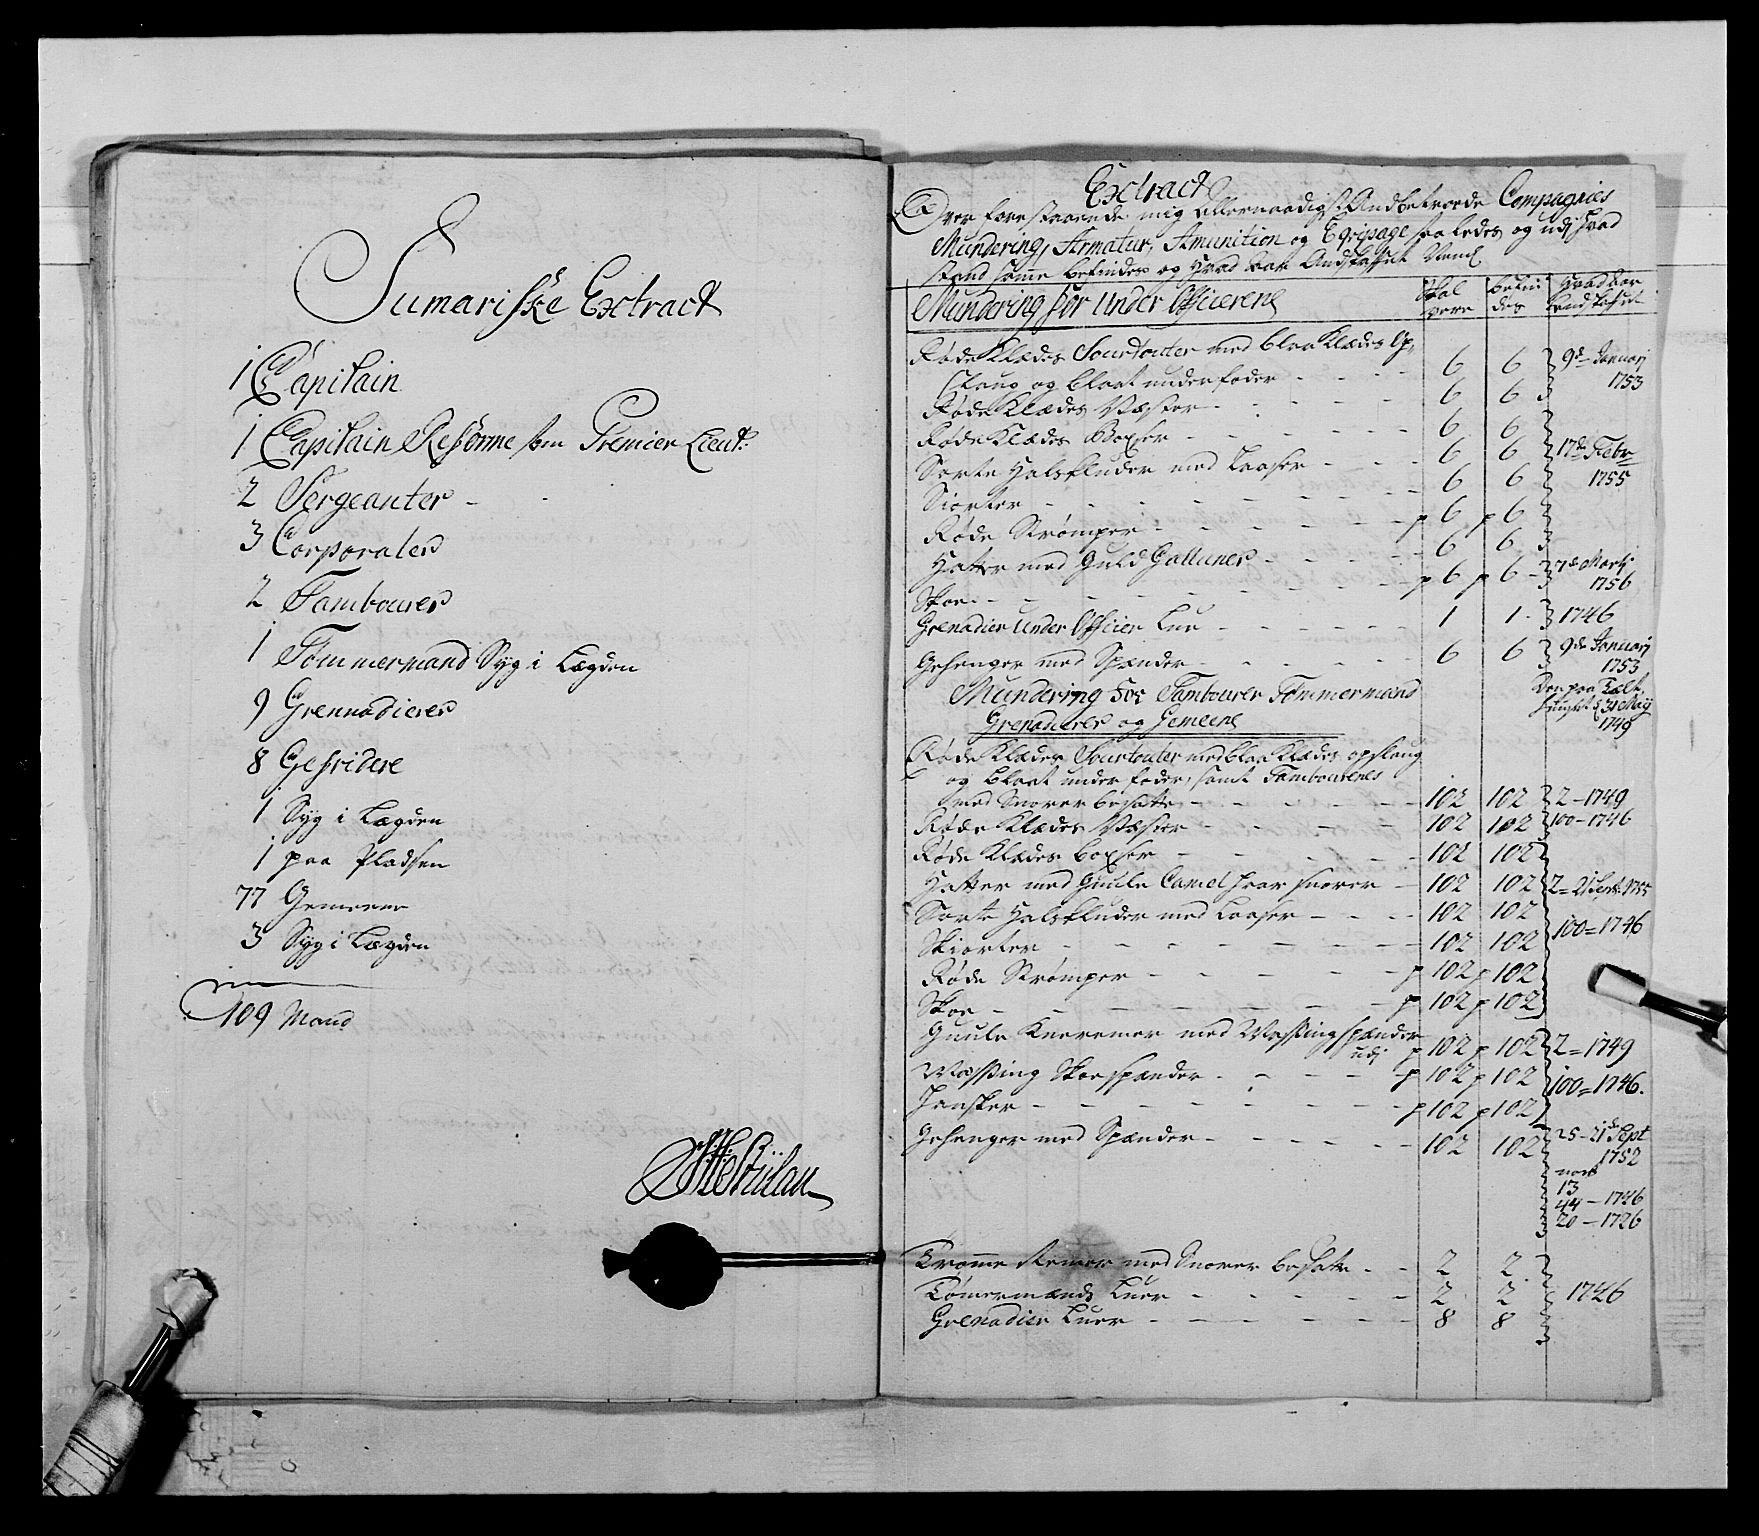 Sumariske Extract
1 Capitain
1 Capitain Reforme som Premier Lieut:
2 Sergeanter
3 Corporaler
2 Tambourer
1 Tømmermand Syg i Lægden
9 Grennadierer
8 Gefridere
1 Syg i Lægden
1 paa Pladsen
77 Gemeene
3 Syg i Lægden
109 Mand
Extract
Over forestaaende mig allernaadigst Andbetroede Compagnies
Mundering, Armatur, Amunition og Eqvipage saaledes og udj hvad
stand samme befindes og hvad aar Andskaffet
Mundering for Under Officerene
skal være
befindes
hvad aar andskaffet
Røde Klædes Sourtouter med blaa Klædes Op-
slaug og blaat underfoder - - 6 6 9de Januarj
1753
Røde Klædes Væster - - 6 6
Røde Klædes Boxser - - 6 6
Sorte Halskluder med Laaser - - 6 6 17de Febr
1755
Skiorter - - 6 6
Røde Strømper - - p 6 p 6
Hatter med Guld Galluner - - 6 6
Skoe - - p 6 p 6 7de Martj
1756
Grenadier Under Officier Lue - - 1 1 1746
Gehenger med Spænder - - 6 6 9de Januarj
1753
Mundering for Tambourer Tømmermand
Grenadierer og Gemeene
31 Maÿ
1749
Røde Klædes Sourtouter med blaa Klædes opslaug
og blaat underfoder, samt Tambourenes
med Snorer besatte - - 102 102 2 - 1749
Røde Klædes Væster - - 102 102 100 - 1746
Røde Klædes boxser - - 102 102
Hatter med Guule Camelhaar snorer - 102 102 2 = 21 Sept: 1755
Sorte Halskluder med Laaser - - 102 102
100 = 1746
Skiorter - - 102 102
Røde Strømper - - p 102 p 102
Skoe - - p 102 p 102
Guule Kneeremer med Messing spænder
udj p 102 p 102 2 = 1749
Messing Skoespænder - - p 102 p 102
100 = 1746.
Hansker - - p 102 p 102
Gehenger med Spænder - - 102 102 25 - 21de Sept
1752
13
44 - 1746
20 - 1726
Tromme Remer med Snorer besatt - - 2 2
Tømermands Luer - - 2 2 1746
Grenadier Luer - - 8 8